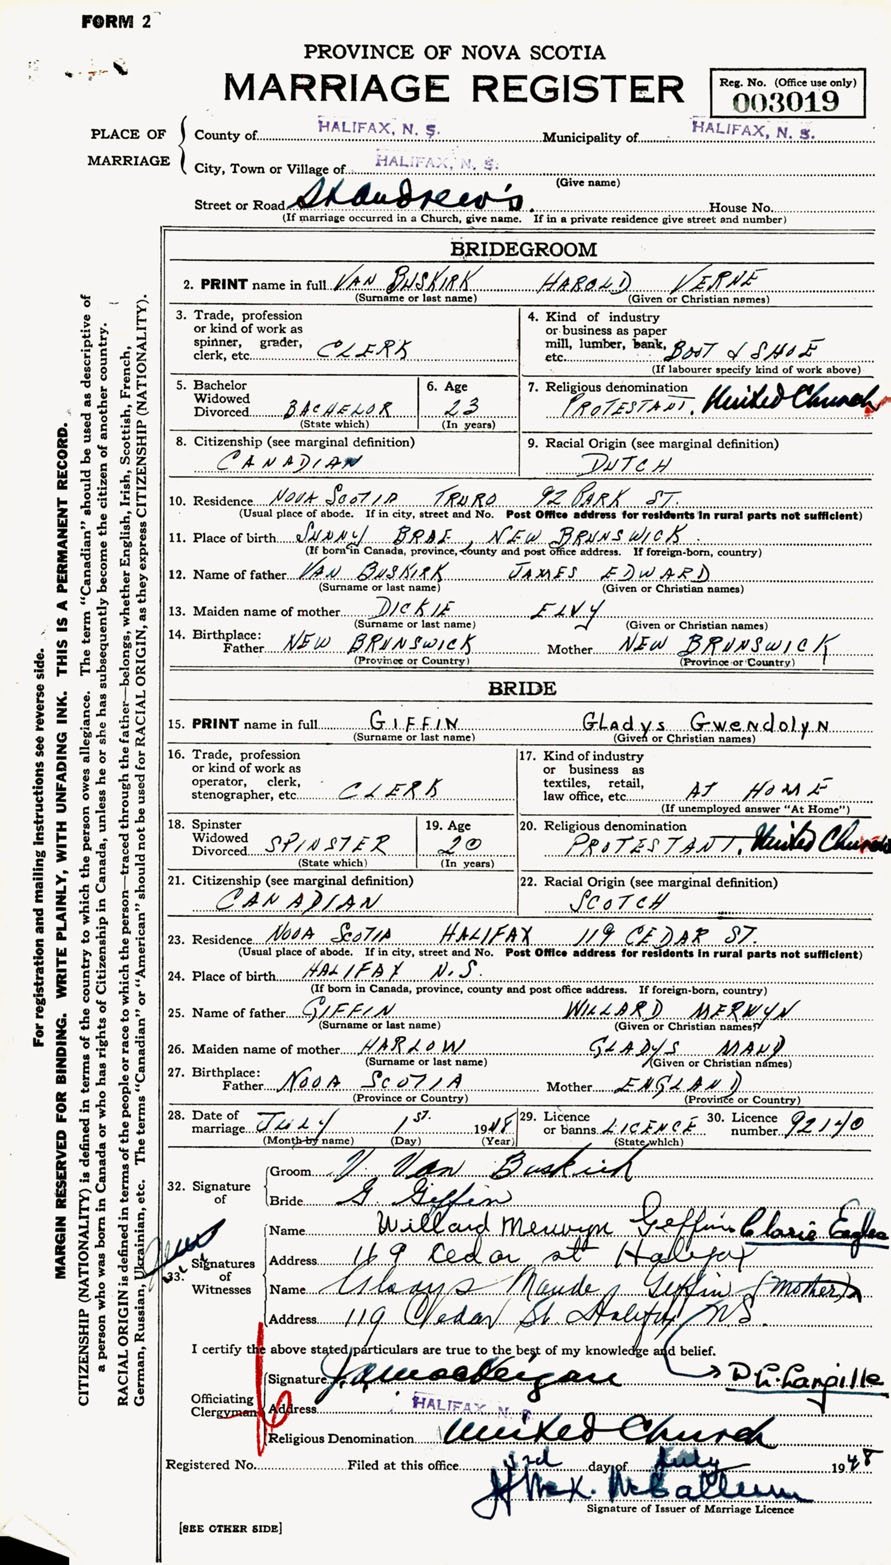 FORM 2
PROVINCE OF NOVA SCOTIA
MARRIAGE REGISTER
Reg. No. (Office use only)
003019
PLACE OF MARRIAGE
County of HALIFAX, N. S. Municipality of HALIFAX, N. S.
City, Town or Village of HALIFAX, N. S.
(Give name)
Street or Road St Andrew's. House No.
(If marriage occurred in a Church, give name. If in a private residence give street and number)
BRIDEGROOM
2. PRINT name in full VAN BUSKIRK HAROLD VERNE
(Surname or last name) (Given or Christian names)
3. Trade, profession or kind of work as spinner, grader, clerk, etc. CLERK
4. Kind of industry or business as paper mill, lumber, bank, etc. BOOT & SHOE
(If labourer specify kind of work above)
5. Bachelor Widowed Divorced BACHELOR
(State which)
6. Age 23
(In years)
7. Religious denomination
PROTESTANT. United Church
8. Citizenship (see marginal definition)
CANADIAN
9. Racial Origin (see marginal definition)
DUTCH
10. Residence NOVA SCOTIA TRURO 92 PARK ST.
(Usual place of abode. If in city, street and No. Post Office address for residents in rural parts not sufficient)
11. Place of birth SUNNY BRAE, NEW BRUNSWICK.
(If born in Canada, province, county and post office address. If foreign-born, country)
12. Name of father VAN BUSKIRK JAMES EDWARD
(Surname or last name) (Given or Christian names)
13. Maiden name of mother DICKIE ELNY
(Surname or last name) (Given or Christian names)
14. Birthplace:
Father NEW BRUNSWICK Mother NEW BRUNSWICK
(Province or Country) (Province or Country)
BRIDE
15. PRINT name in full GIFFIN GLADYS GWENDOLYN
(Surname or last name) (Given or Christian names)
16. Trade, profession or kind of work as operator, clerk, stenographer, etc. CLERK
17. Kind of industry or business as textiles, retail, law office, etc. AT HOME
(If unemployed answer "At Home")
18. Spinster Widowed Divorced SPINSTER
(State which)
19. Age 20
(In years)
20. Religious denomination
PROTESTANT. United Church
21. Citizenship (see marginal definition)
CANADIAN
22. Racial Origin (see marginal definition)
SCOTCH
23. Residence NOVA SCOTIA HALIFAX 119 CEDAR ST.
(Usual place of abode. If in city, street and No. Post Office address for residents in rural parts not sufficient)
24. Place of birth HALIFAX N.S.
(If born in Canada, province, county and post office address. If foreign-born, country)
25. Name of father GIFFIN WILLARD MERWYN
(Surname or last name) (Given or Christian names)
26. Maiden name of mother HARLOW GLADYS MAUD
(Surname or last name) (Given or Christian names)
27. Birthplace:
Father NOVA SCOTIA Mother ENGLAND
(Province or Country) (Province or Country)
28. Date of marriage JULY 1st. 1948
(Month by name) (Day) (Year)
29. Licence or banns LICENCE
(State which)
30. Licence number 92140
32. Signature of
Groom V. Van Buskirk
Bride G. Giffin
33. Signatures of Witnesses
Name Willard Merwyn Giffin
Address 119 Cedar st Halifax
Name Gladys Maude Giffin (Mother)
Address 119 Cedar St. Halifax NS.
I certify the above stated particulars are true to the best of my knowledge and belief.
Officiating Clergyman
Signature
D. L. Langille
Address HALIFAX, N. S.
Religious Denomination United Church
Registered No. Filed at this office 3rd day of July 1948
Signature of Issuer of Marriage Licence
[SEE OTHER SIDE]
For registration and mailing instructions see reverse side.
MARGIN RESERVED FOR BINDING. WRITE PLAINLY, WITH UNFADING INK. THIS IS A PERMANENT RECORD.
CITIZENSHIP (NATIONALITY) is defined in terms of the country to which the person owes allegiance. The term "Canadian" should be used as descriptive of
a person who was born in Canada or who has rights of Citizenship in Canada, unless he or she has subsequently become the citizen of another country.
RACIAL ORIGIN is defined in terms of the people or race to which the person—traced through the father—belongs, whether English, Irish, Scottish, French,
German, Russian, Ukrainian, etc. The terms "Canadian" or "American" should not be used for RACIAL ORIGIN, as they express CITIZENSHIP (NATIONALITY).